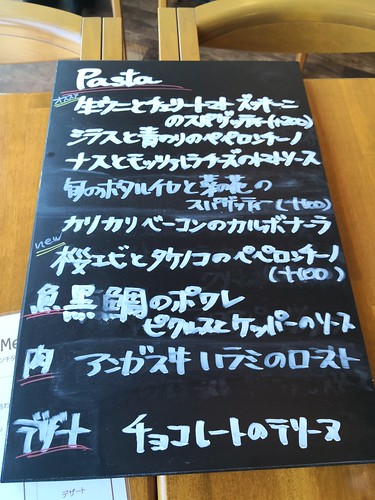 Pasta
オススメ
生ウニとチェリートマト ズッキーニ
のスパゲッティー(+200)
シラスと青のりのペペロンチーノ
ナスとモッツァレラチーズのトマトソース
旬のホタルイカと菜の花の
スパゲッティー(+100)
カリカリベーコンのカルボナーラ
new
桜エビとタケノコのペペロンチーノ
(+100)
魚 黒鯛のポワレ
ピクルスとケッパーのソース
肉 アンガス牛 ハラミのロースト
デザート チョコレートのテリーヌ
Me
デザート